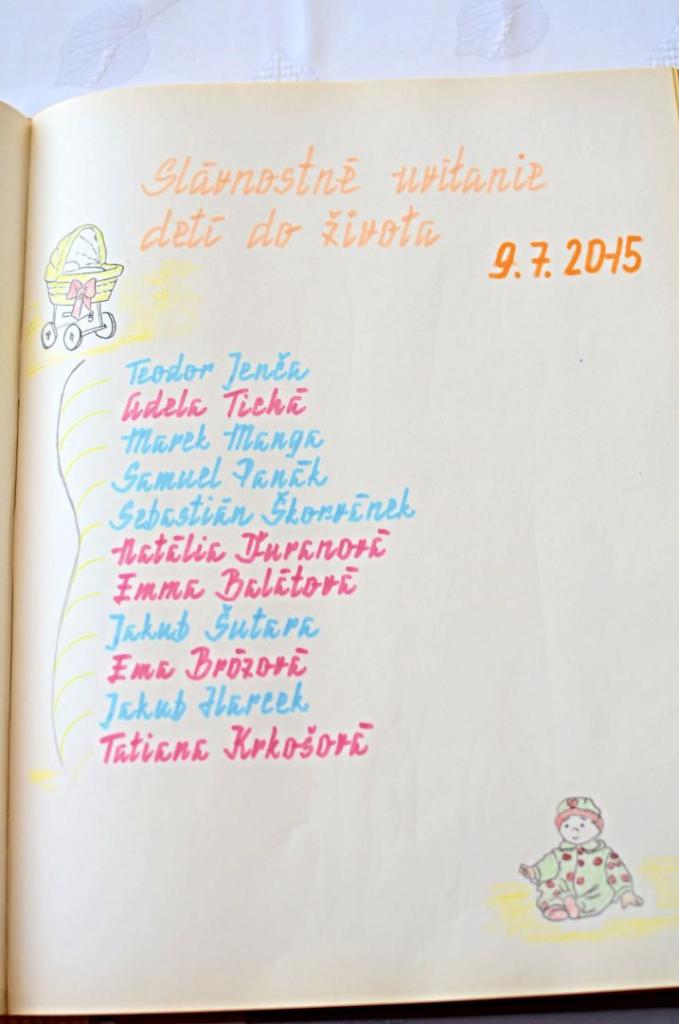 Slávnostné uvítanie
detí do života
9.7.2015
Teodor Jenča
Adela Tichá
Marek Manga
Samuel Panák
Sebastián Škorvánek
Natália Ďuranová
Emma Balátová
Jakub Šutara
Ema Brózová
Jakub
Tatiana Krkošová